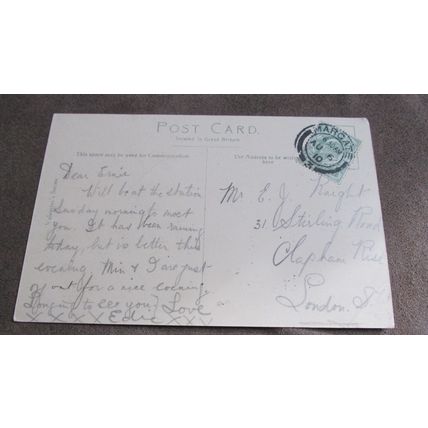 POST CARD.
PRINTED IN GREAT BRITAIN
This space may be used for Communication
The Address to be written
MARGATE
AU 5
10
Dear Ernie
Will be at the station
Sunday morning to meet
you. It has been raining
today, but is better this
evening Min & I are just
out for a nice evening.
Longing to see you Love
x x x x x Edie x x x
Mr E. J. Knight
31 Stirling Road
Clapham Rise
London. S.W.